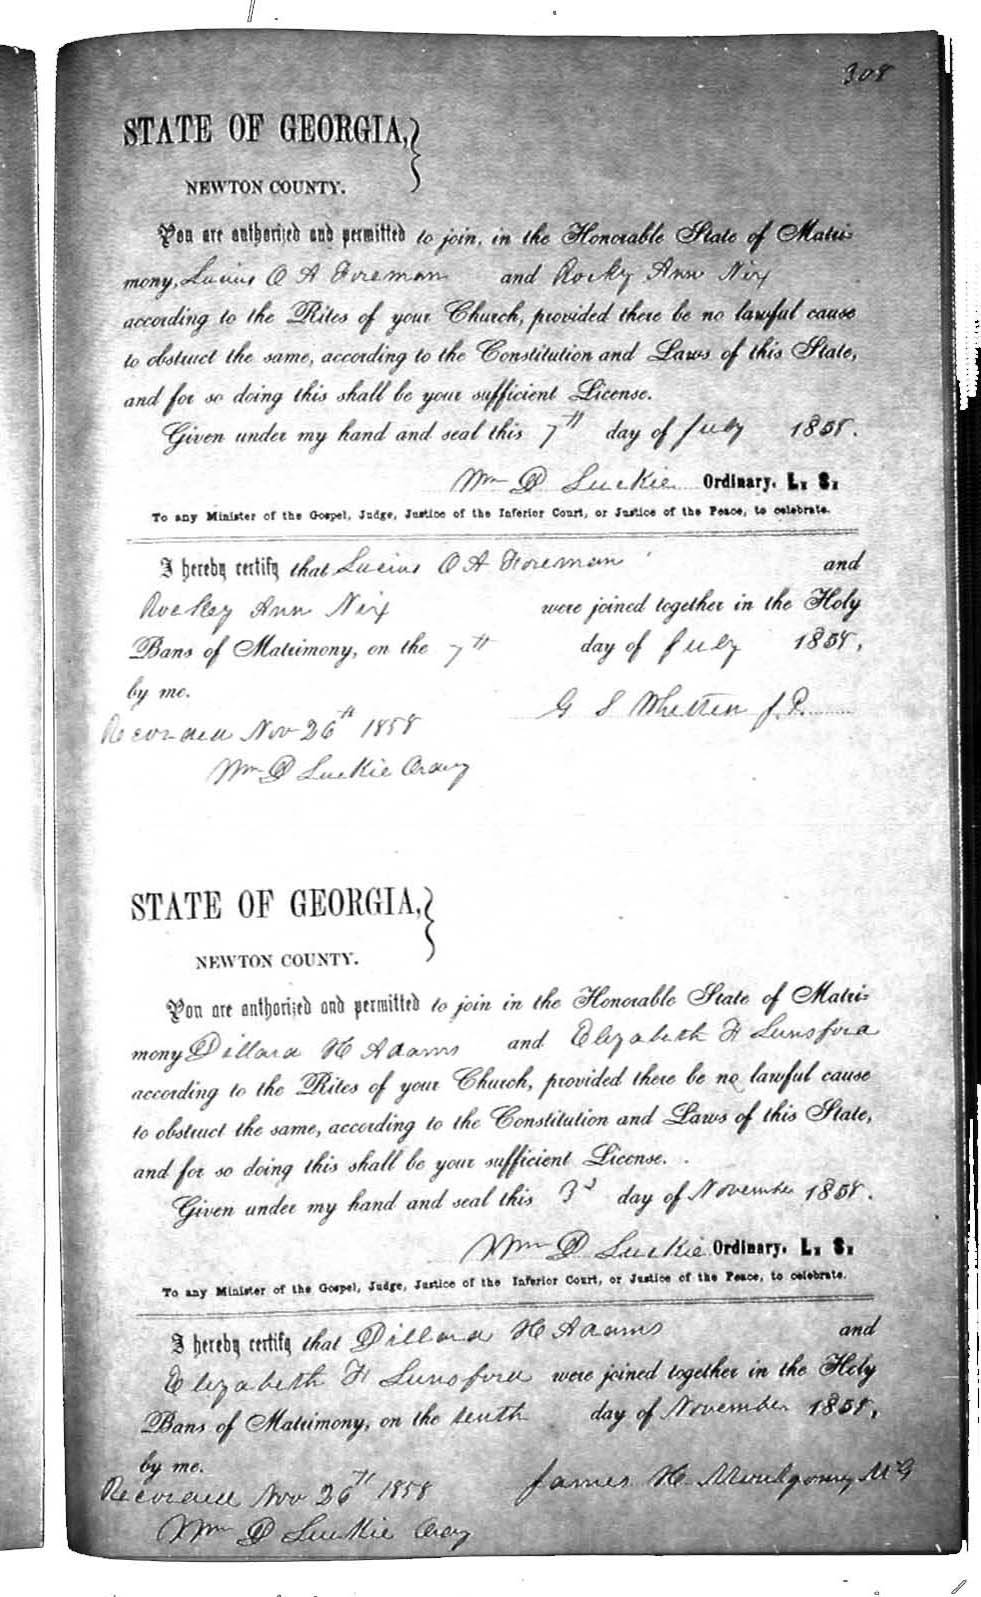 308
STATE OF GEORGIA,
NEWTON COUNTY.
You are authorized and permitted to join, in the Honorable State of Matri-
mony, Lucius O A Foreman and Rocky Ann Nix
according to the Rites of your Church, provided there be no lawful cause
to obstruct the same, according to the Constitution and Laws of this State,
and for so doing this shall be your sufficient License.
Given under my hand and seal this 7th day of July 1858.
Wm D Luckie Ordinary, L. S.
To any Minister of the Gospel, Judge, Justice of the Inferior Court, or Justice of the Peace, to celebrate.
I hereby certify that Lucius O A Foreman and
Ann Nix were joined together in the Holy
Bans of Matrimony, on the 7th day of July 1858,
by me.
G S J.P.
Recorded Nov 26th 1858
Wm D Luckie Ordny
STATE OF GEORGIA,
NEWTON COUNTY.
You are authorized and permitted to join in the Honorable State of Matri-
mony Dillard H Adams and Elizabeth F Lunsford
according to the Rites of your Church, provided there be no lawful cause
to obstruct the same, according to the Constitution and Laws of this State,
and for so doing this shall be your sufficient License.
Given under my hand and seal this 3d day of November 1858.
Wm D Luckie Ordinary, L. S.
To any Minister of the Gospel, Judge, Justice of the Inferior Court, or Justice of the Peace, to celebrate.
I hereby certify that Dillard H Adams and
Elizabeth F Lunsford were joined together in the Holy
Bans of Matrimony, on the tenth day of November 1858,
by me.
James H Montgomery MG
Recorded Nov 26th 1858
Wm D Luckie Ordny